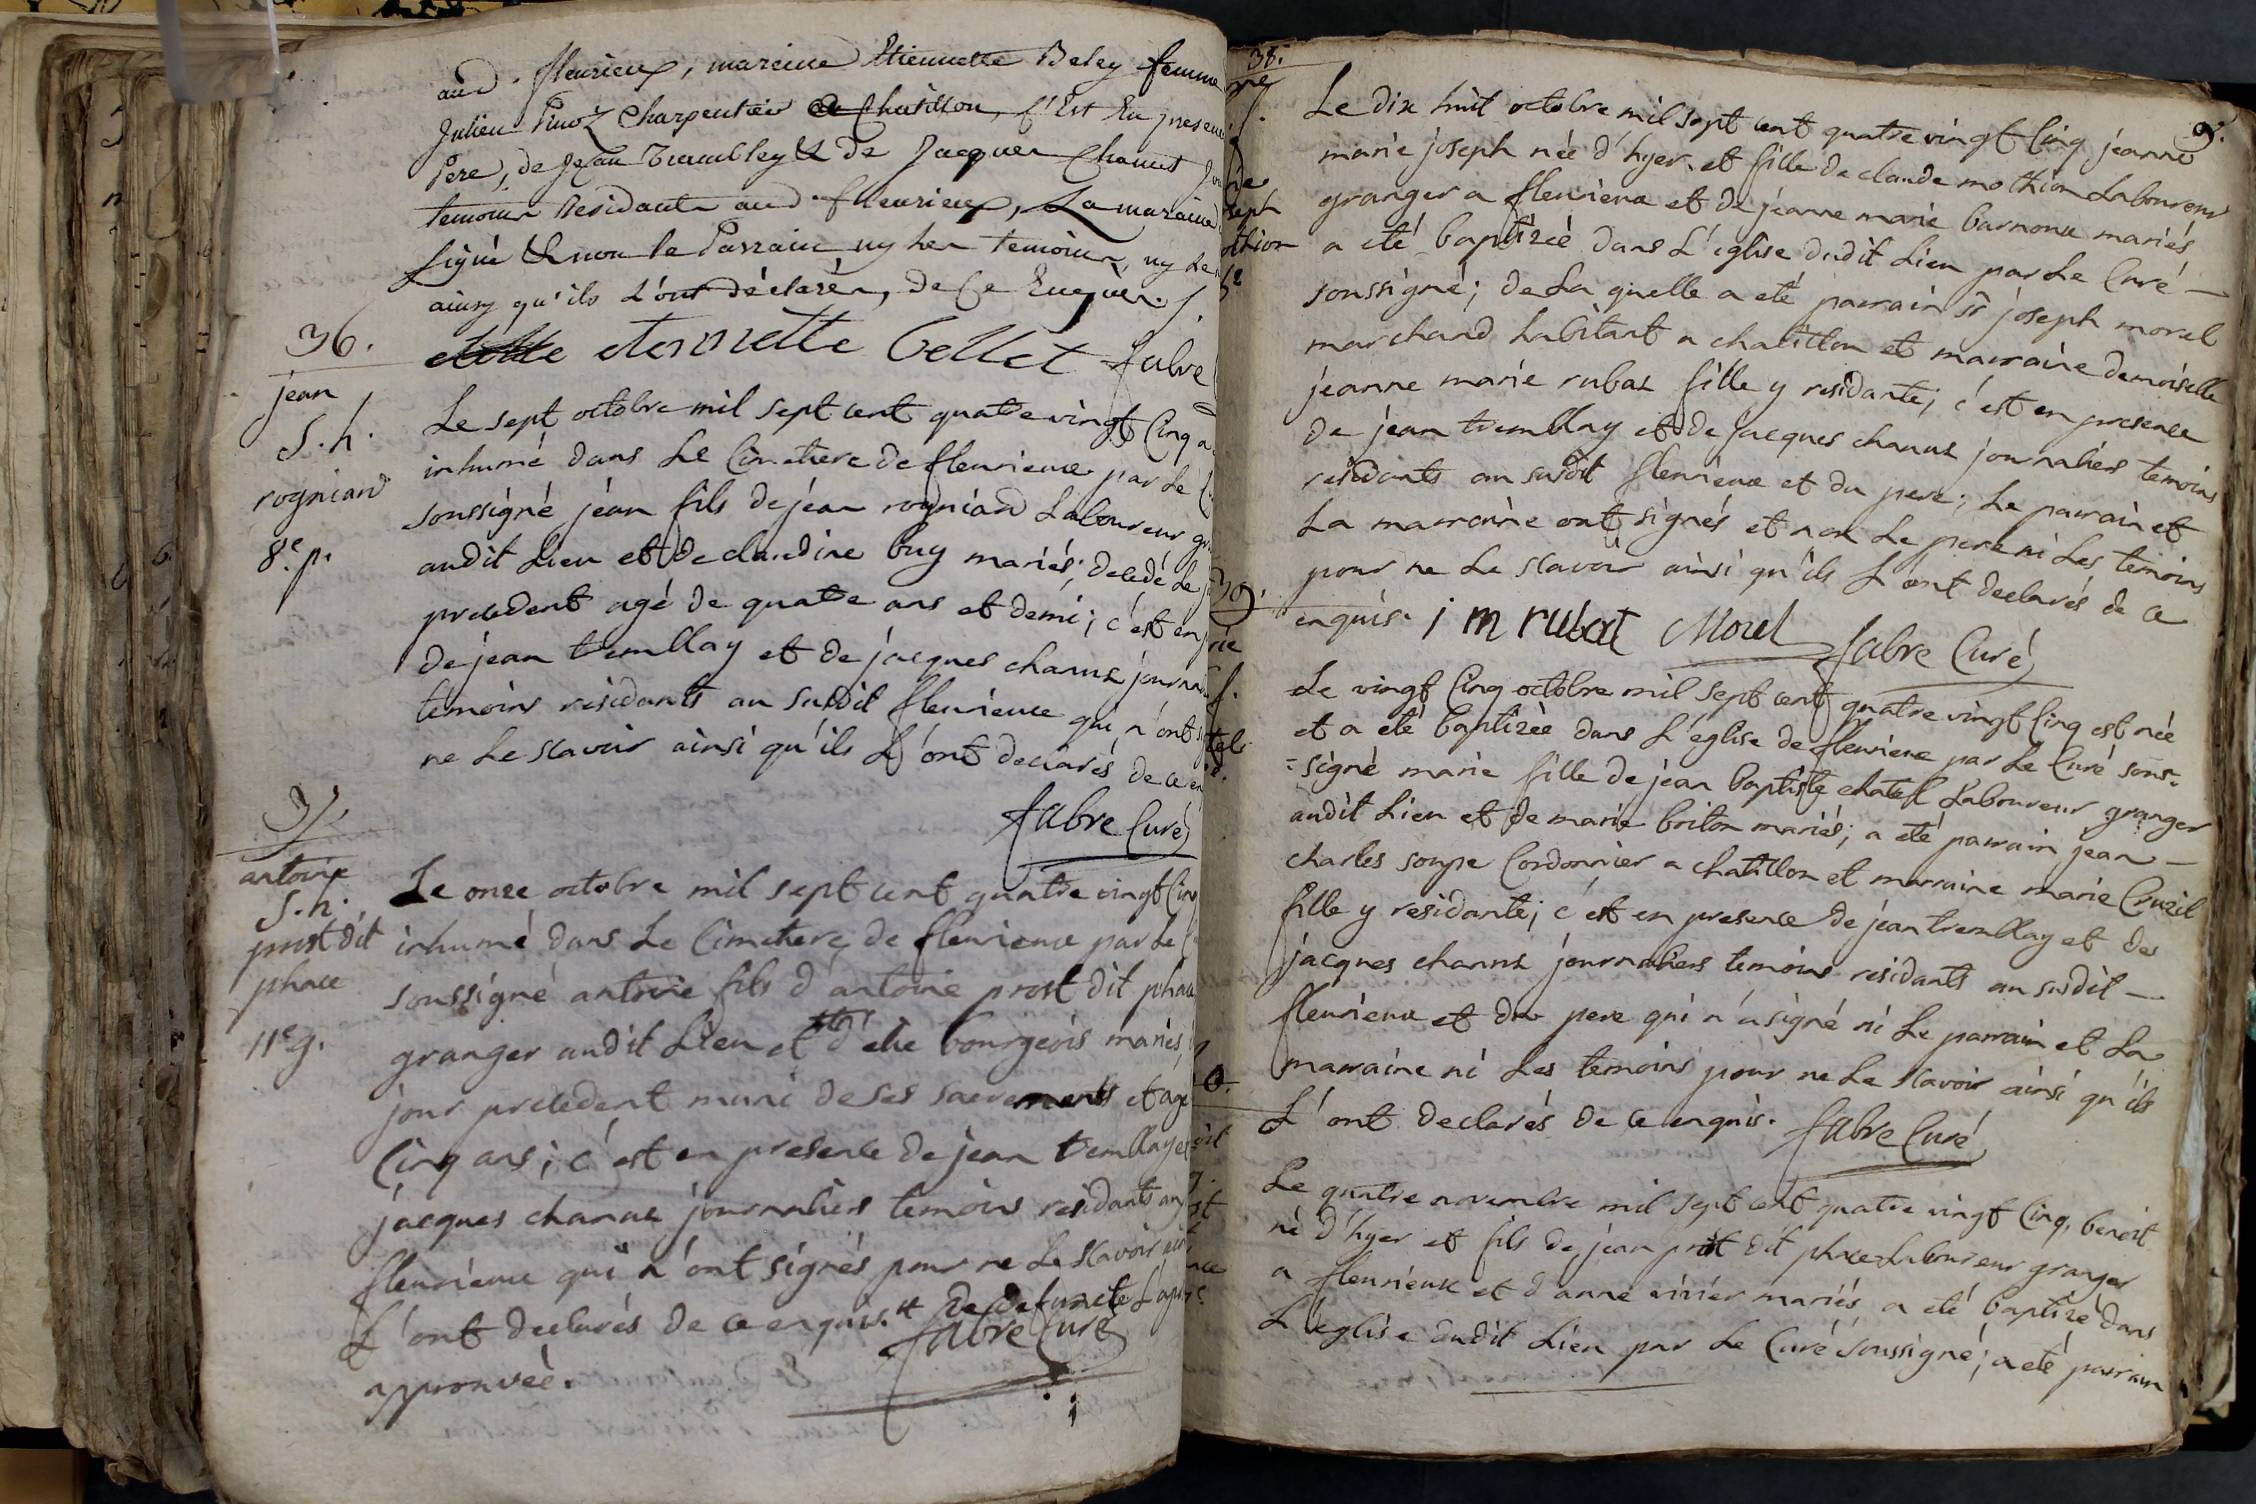 aud. fleurieux, mareine Etiennette Beley femme
Julien Pinoz Charpentier a Chatillon, c'Est En presen
Pere, de Jean Trambley & de Jacques Chanut
temoins Residants aud. fleurieux, La maraine
signé & non le Parrain ny les temoins, ny le
ainsy qu'ils L'ont déclarés, de ce Enquis.
etennette bellet fabre
36.
jean
S. h.
rogniand
8.e p.
Le sept octobre mil sept cent quatre vingt Cinq a
inhumé dans Le Cimetiere de fleurieux par Le
soussigné jéan fils de jéan rogniand Laboureur
audit Lieu et de claudine buy mariés; decedé Le
precedent agé de quatre ans et demi; c'est en
de jean tremblay et de jacques chanut
temoins residants au susdit fleurieux qui n'ont
ne Le scavoir ainsi qu'ils L'ont declarés de ce
fabre Curé
37.
antoine
S. h.
prost dit
phace
11e g.
Le onze octobre mil sept cent quatre vingt Cinq
inhumé dans Le Cimetiere de fleurieux par Le
soussigné antoine fils d'antoine prost dit phace
granger audit Lieu et d' bourgeois mariés,
jour precedent muni de ses sacrements et agé
Cinq ans; c'est en presence de jean tremblay et
jacques chanut journaliers temoins residants au
fleurieux qui n'ont signés pour ne Le scavoir
L'ont declarés de ce enquis. de defuncte
fabre Curé
approuvéé.
38.
Le dix huit octobre mil sept cent quatre vingt Cinq jeanne
marie joseph née d'hyer et fille de claude mothion Laboureur
granger a fleurieux et de jeanne marie barnoux mariés
a eté baptizéé dans L'église dudit Lieu par Le Curé —
soussigné; de La quelle a eté parrain sr joseph morel
marchand habitant a chatillon et marraine demoiselle
jeanne marie rubat fille y residante; c'est en presence
de jean tremblay et de jacques chanut journaliers temoins
residants au susdit fleurieux et du pere; Le parrain et
La marraine ont signés et non Le pere ni Les temoins
pour ne Le scavoir ainsi qu'ils L'ont declarés de ce
enquis. j m rubat Morel fabre Curé
39.
Le vingt Cinq octobre mil sept cent quatre vingt Cinq est née
et a eté baptizéé dans L'église de fleurieux par Le Curé sous-
=signé marie fille de jean baptiste chatel Laboureur granger
audit Lieu et de marie briton mariés; a eté parrain jean —
charles soupe Cordonnier a chatillon et marraine marie Cruzil
fille y residante; c'est en presence de jean tremblay et de
jacques chanut journaliers temoins residants au susdit —
fleurieux et du pere qui n'a signé ni Le parrain et La
marraine ni Les temoins pour ne Le scavoir ainsi qu'ils
L'ont declarés de ce enquis. fabre Curé
Le quatre novembre mil sept cent quatre vingt Cinq, benoit
né d'hyer et fils de jéan prost dit phace Laboureur granger
a fleurieux et d'anne vivier mariés a eté baptizé dans
L'église dudit Lieu par Le Curé soussigné; a eté parrain